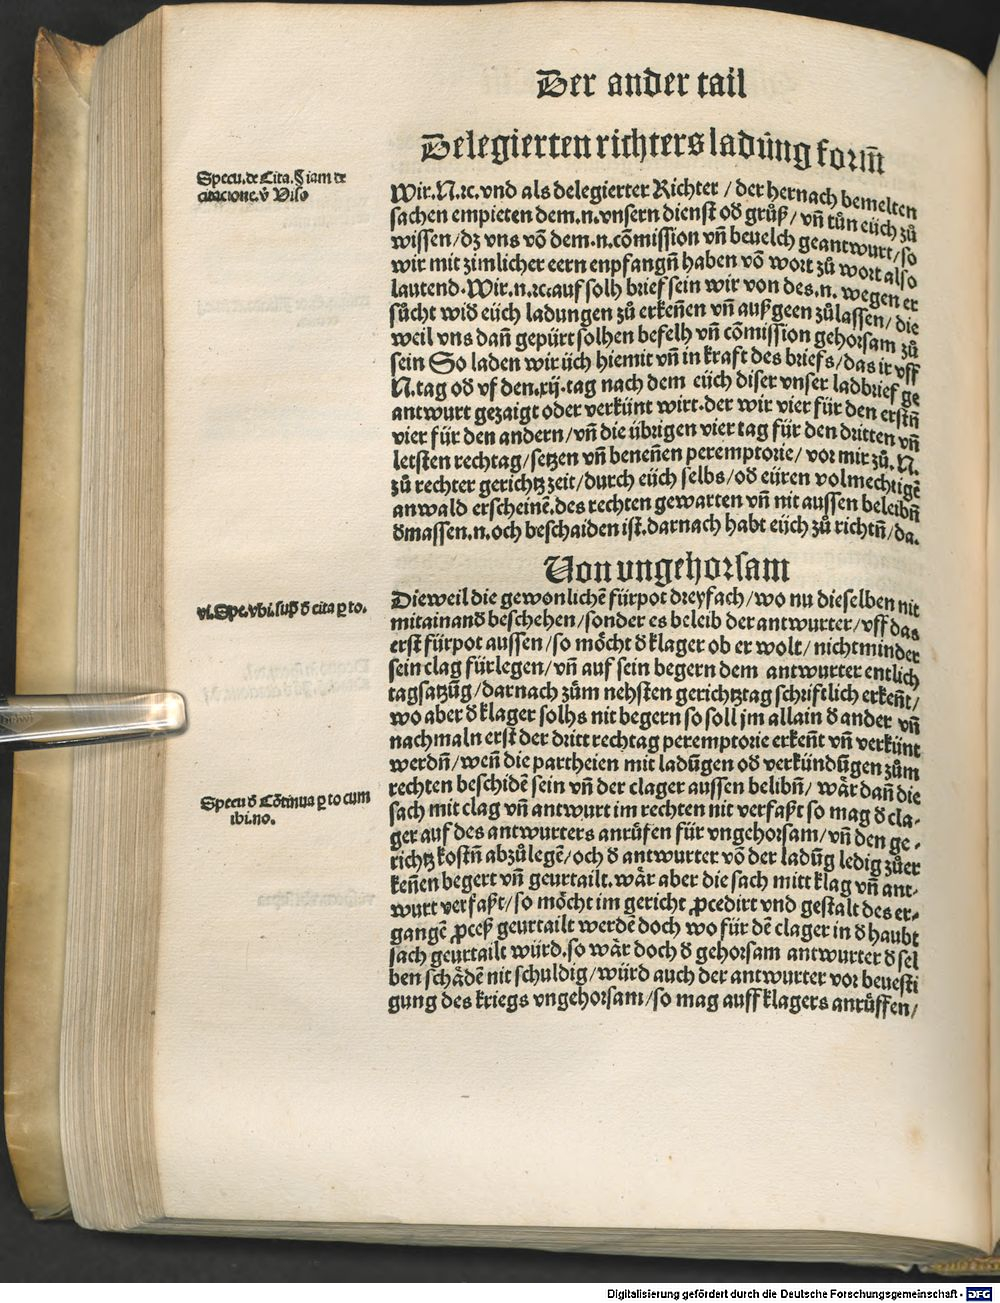 Der ander tail
Delegierten richters ladūng form̄
Specu. de Cita. § iam de
citacione. v̄ Viso
Wir. N. ꝛc. vnd als delegierter Richter / der hernach bemelten
sachen empieten dem. n. vnsern dienst od̄ grůß / vñ tůn eüch zů
wissen / dz vns vō dem. n. cōmission vñ beuelch geantwurt / so
wir mit zimlicher eern enpfangñ haben vō wort zů wort also
lautend. Wir. n. ꝛc. auf solh brief sein wir von des. n. wegen er
sůcht wid̄ eüch ladungen zů erkeñen vñ außgeen zůlassen / die
weil vns dañ gepürt solhen befelh vñ cōmission gehorsam zů
sein So laden wir üch hiemit vñ in kraft des briefs / das ir vff
N. tag od̄ vf den. xij. tag nach dem eüch diser vnser ladbrief ge
antwurt gezaigt oder verkünt wirt. der wir vier für den erstñ
vier für den andern / vñ die übrigen vier tag für den dritten vñ
letsten rechtag / setzen vñ beneñen peremptorie / vor mir zů. N.
zů rechter gerichtz zeit / durch eüch selbs / od̄ eüren volmechtigē
anwald erscheinē. des rechten gewarten vñ nit aussen beleibñ
d̄massen. n. och beschaiden ist. darnach habt eüch zů richtñ / da.
Von vngehorsam
vl. Spe. vbi. suß d̄ cita ꝑ to.
Dieweil die gewonlichē fürpot dreyfach / wo nu dieselben nit
mitainand̄ beschehen / sonder es beleib der antwurter / vff das
erst fürpot aussen / so möcht d̄ klager ob er wolt / nichtminder
sein clag fürlegen / vñ auf sein begern dem antwurter entlich
tagsatzūg / darnach zům nehsten gerichtztag schriftlich erkeñt /
wo aber d̄ klager solhs nit begern so soll jm allain d̄ ander vñ
nachmaln erst der dritt rechtag peremptorie erkeñt vñ verkünt
werdñ / weñ die partheien mit ladūgen od̄ verkündūgen zům
rechten beschidē sein vñ der clager aussen belibñ / wär dañ die
Specu d̄ Cōtinua ꝑ to cum
ibi. no.
sach mit clag vñ antwurt im rechten nit verfaßt so mag d̄ cla-
ger auf des antwurters anrůfen für vngehorsam / vñ den ge-
richtz kostñ abzůlegē / och d̄ antwurter vō der ladūg ledig zůer
keñen begert vñ geurtailt. wär aber die sach mitt klag vñ ant-
wurt verfaßt / so möcht im gericht ꝓcedirt vnd gestalt des er-
gangē ꝓceß geurtailt werdē doch wo für dē clager in d̄ haubt
sach geurtailt würd. so wär doch d̄ gehorsam antwurter d̄ sel
ben schädē nit schuldig / würd auch der antwurter vor beuesti
gung des kriegs vngehorsam / so mag auff klagers anrůffen /
Digitalisierung gefördert durch die Deutsche Forschungsgemeinschaft - DFG